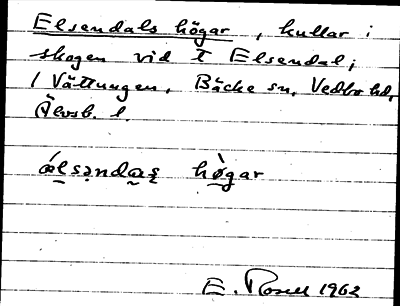 Elsendals högar, kullar i
skogen vid t Elsendal,
i Vättungen, Bäcke sn, Vedbo hd,
Älvsb. l.
hògar
E. Rosell 1962